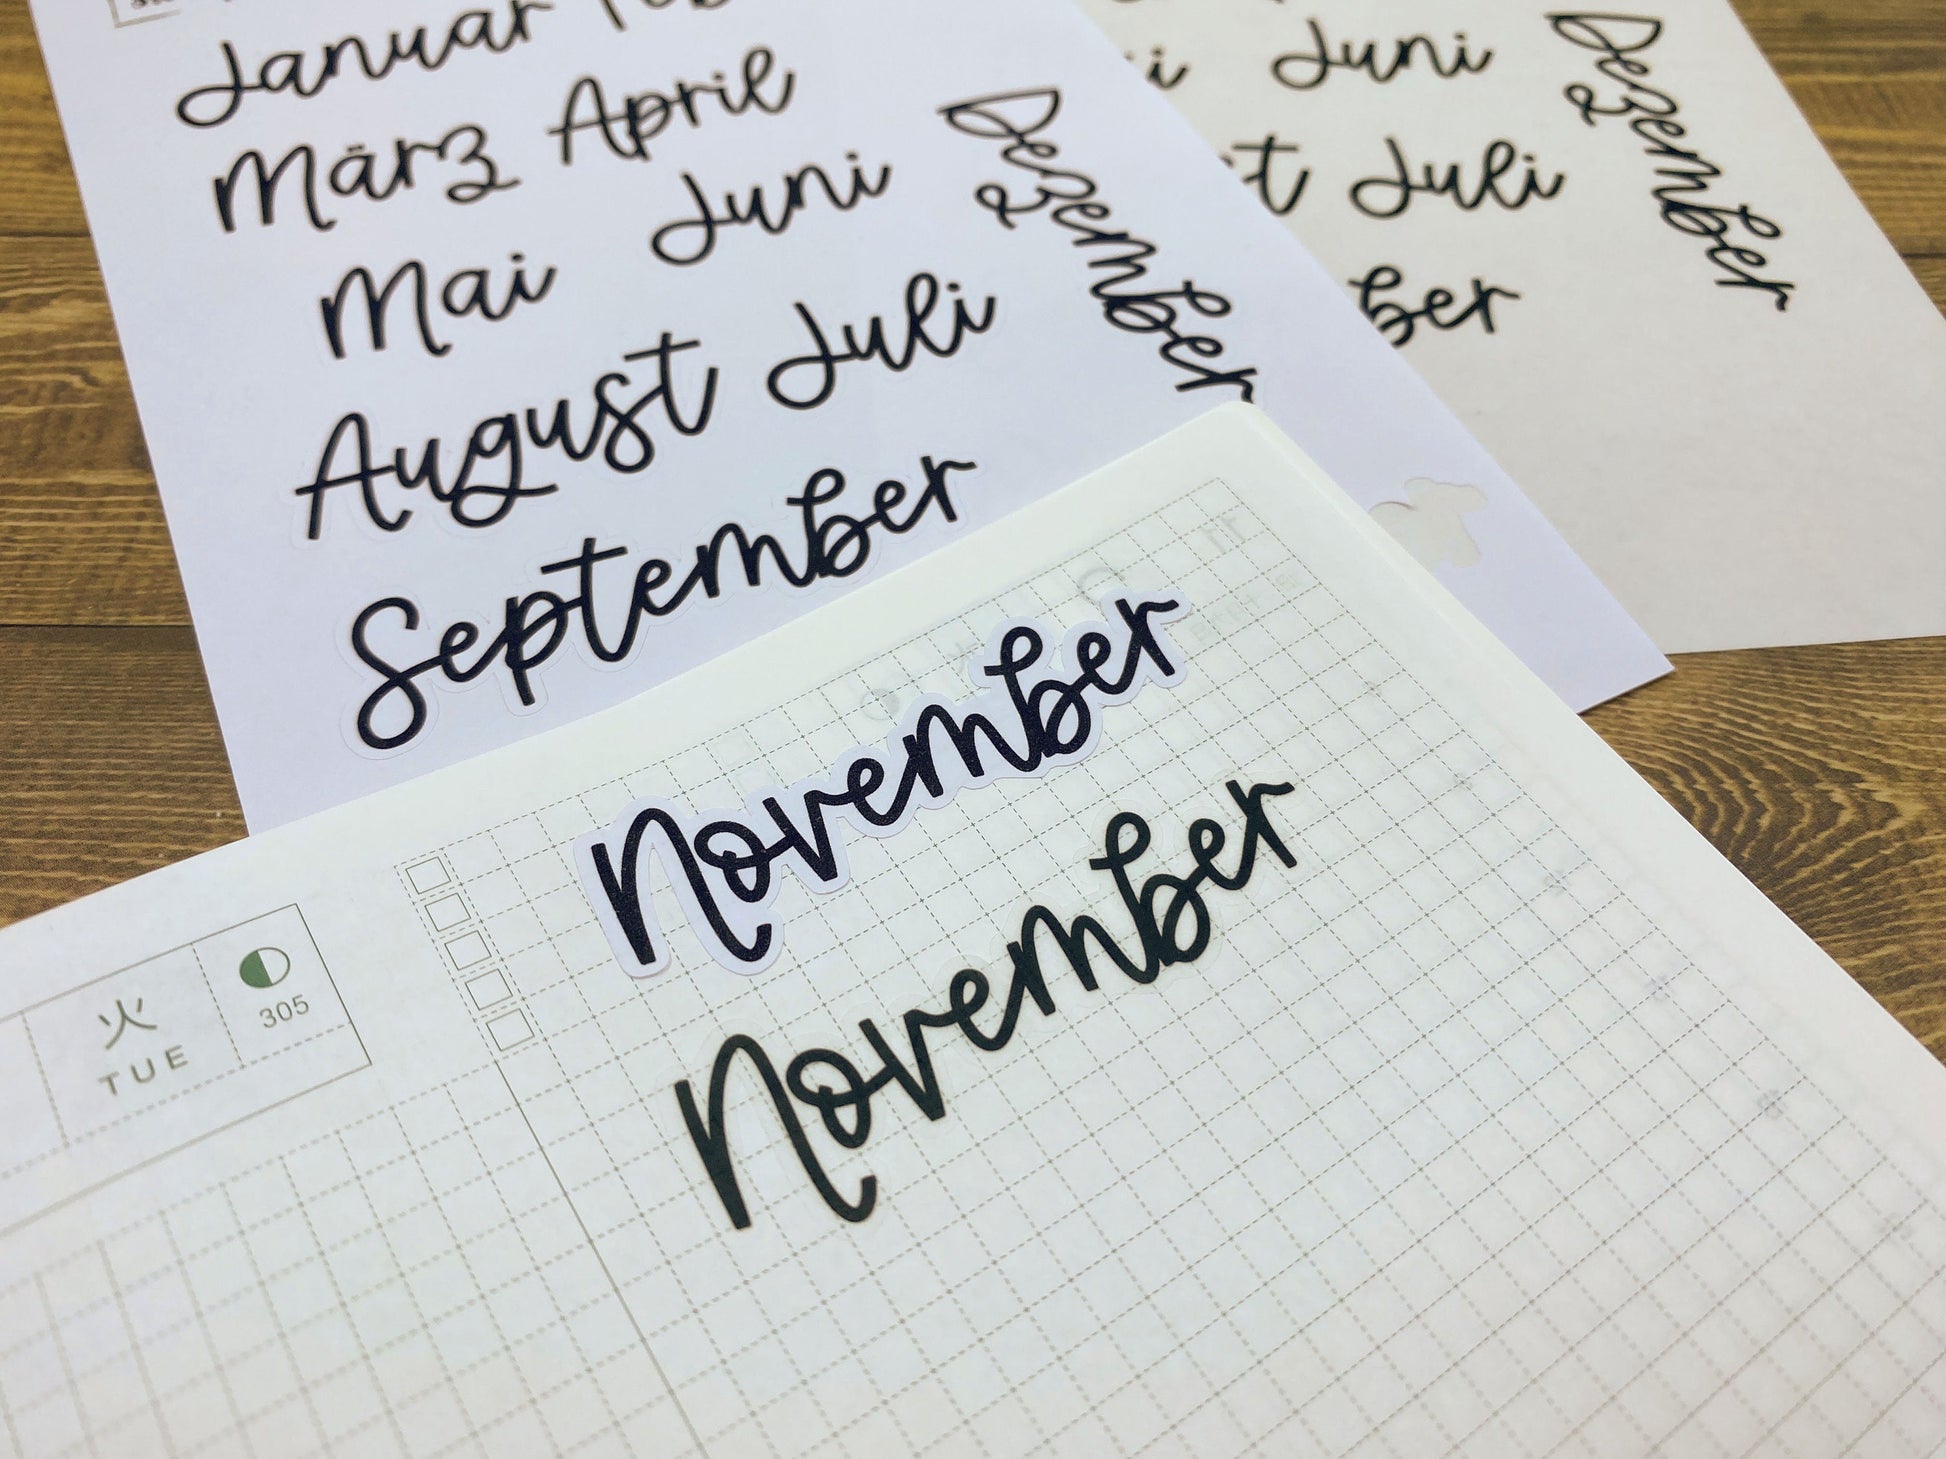 Januar
März April
Mai Juni
August Juli
September
Dezember
Juni
Juli
Dezember
November
November
火
TUE
305